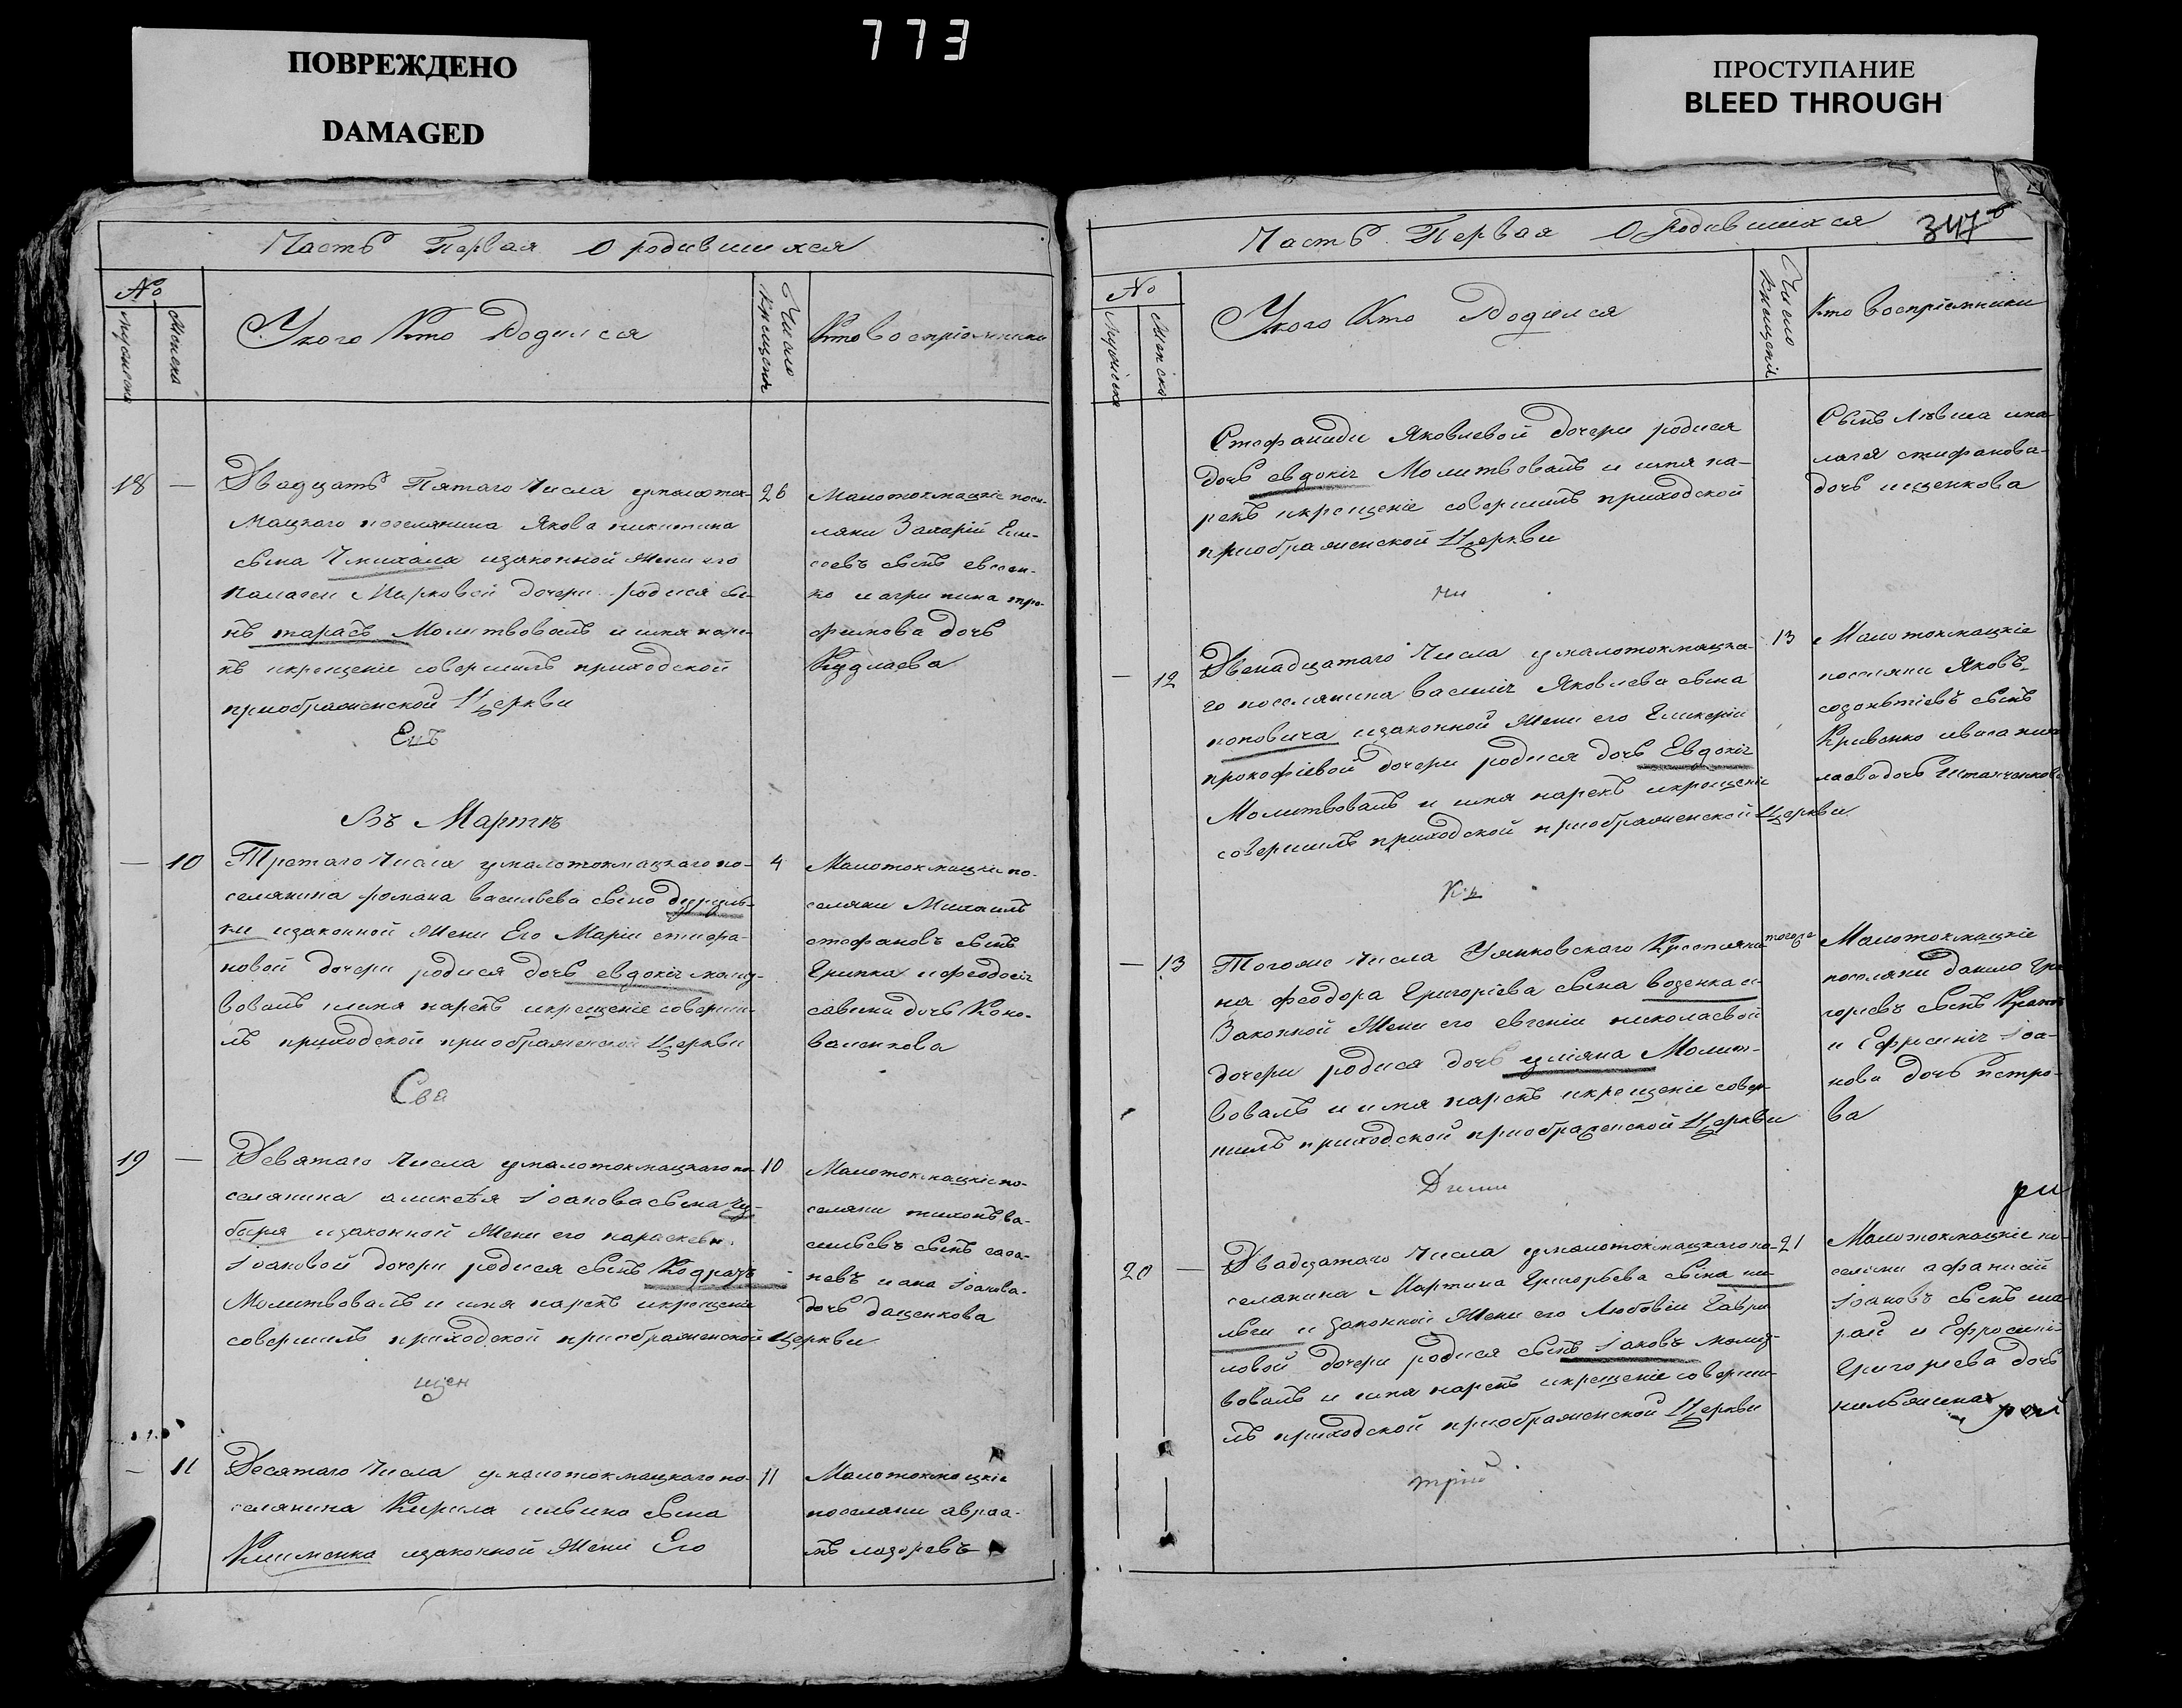 773
ПОВРЕЖДЕНО
DAMAGED
ПРОСТУПАНИЕ
BLEED THROUGH
Часть Первая О родившихся
№
Мужеска
Женска
У кого Кто Родился
Число Крещенія
Кто воспріемники
18 —
Двадцать Пятаго Числа умалоток-
мацкаго поселянина Якова никитина
сына изаконной Жени его
Палагеи Марковой дочери родися сы-
нъ тарасъ Молитвовалъ и имя наре-
къ икрещеніе совершилъ приходской
приображенской Церкви
26
Малотокмацкіе посе-
ляни Захарій Ели-
сеевъ сынъ евсеен-
ко иагрипина тро-
фимова дочь
Кудлаева
Енъ
Въ Мартѣ
— 10
Третаго Числа умалотокмацкаго по-
селянина романа васильева сына
ки изаконной Жени Его Маріи стефа-
новой дочери родися дочь евдокіч молит-
вовалъ иимя нарекъ икрещеніе соверши-
лъ приходской приображенской Церкви
4
Малотокмацкіе по-
селяни Михаилъ
стефановъ сынъ
Грипка ифеодосіч
савина дочь Коно-
валенкова
Сва
19 —
Девятаго Числа умалотокмацкаго по-
селянина аликсѣя Іоанова сына Чу-
быря изаконной Жени его параскеви
Іоановой дочери родися сынъ Кодратъ
Молитвовалъ и имя нарекъ икрещеніе
совершилъ приходской приображенской Церкви
10
Малотокмацкіе по-
селяни тихонъ ва-
сильевъ сынъ гага-
невъ иана Іоанова
дочь дащенкова
щен
— 11
Десятаго Числа умалотокмацкаго по-
селянина Кирила ильина сына
Клименка изаконной Жени Его
11
Малотокмацкіе
поселяни авраа-
мъ лазоревъ
Часть Первая О родившихся
347
№
Мужеска
Женска
У кого Кто Родился
Число Крещенія
Кто воспріемники
Стефаниди Яковлевой дочери родися
дочь евдокіч Молитвовалъ и имя на-
рекъ икрещеніе совершилъ приходской
приображенской Церкви
Сынъ Лѣвша ипа-
лагея стифанова
дочь ищенкова
чи
— 12
Двенадцатаго Числа умалотокмацка-
го поселянина василіч Яковлева сына
поповича изаконной Жени его Гликеріи
прокофіевой дочери родися дочь Евдокіч
Молитвовалъ и имя нарекъ икрещеніе
совершилъ приходской приображенской Церкви
13
Малотокмацкіе
поселяни Яковъ
созонтіевъ сынъ
Кривенко
лаева дочь
— 13
Тогоже Числа Крестяни-
на феодора Григоріева сына воденка и-
Законной Жени его евгеніи николаевой
дочери родися дочь уліяна Молит-
вовалъ и имя нарекъ икрещеніе совер-
шилъ приходской приображенской Церкви
тогоже
Малотокмацкіе
поселяни данило Гри-
горіевъ сынъ
и Ефросиніч Іоа-
нова дочь петро-
ва
20 —
Двадцатаго Числа умалотокмацкаго по-
селянина Мартина Григорьева сына
и законной Жени его Любовіи Гаври-
ловой дочери родися сынъ Іаковъ молит-
вовалъ и имя нарекъ икрещеніе соверши-
лъ приходской приображенской Церкви
21
Малотокмацкіе по-
селяни афанасій
Іоановъ сынъ ша-
рай и Ефросинія
Григоріева дочь
трій